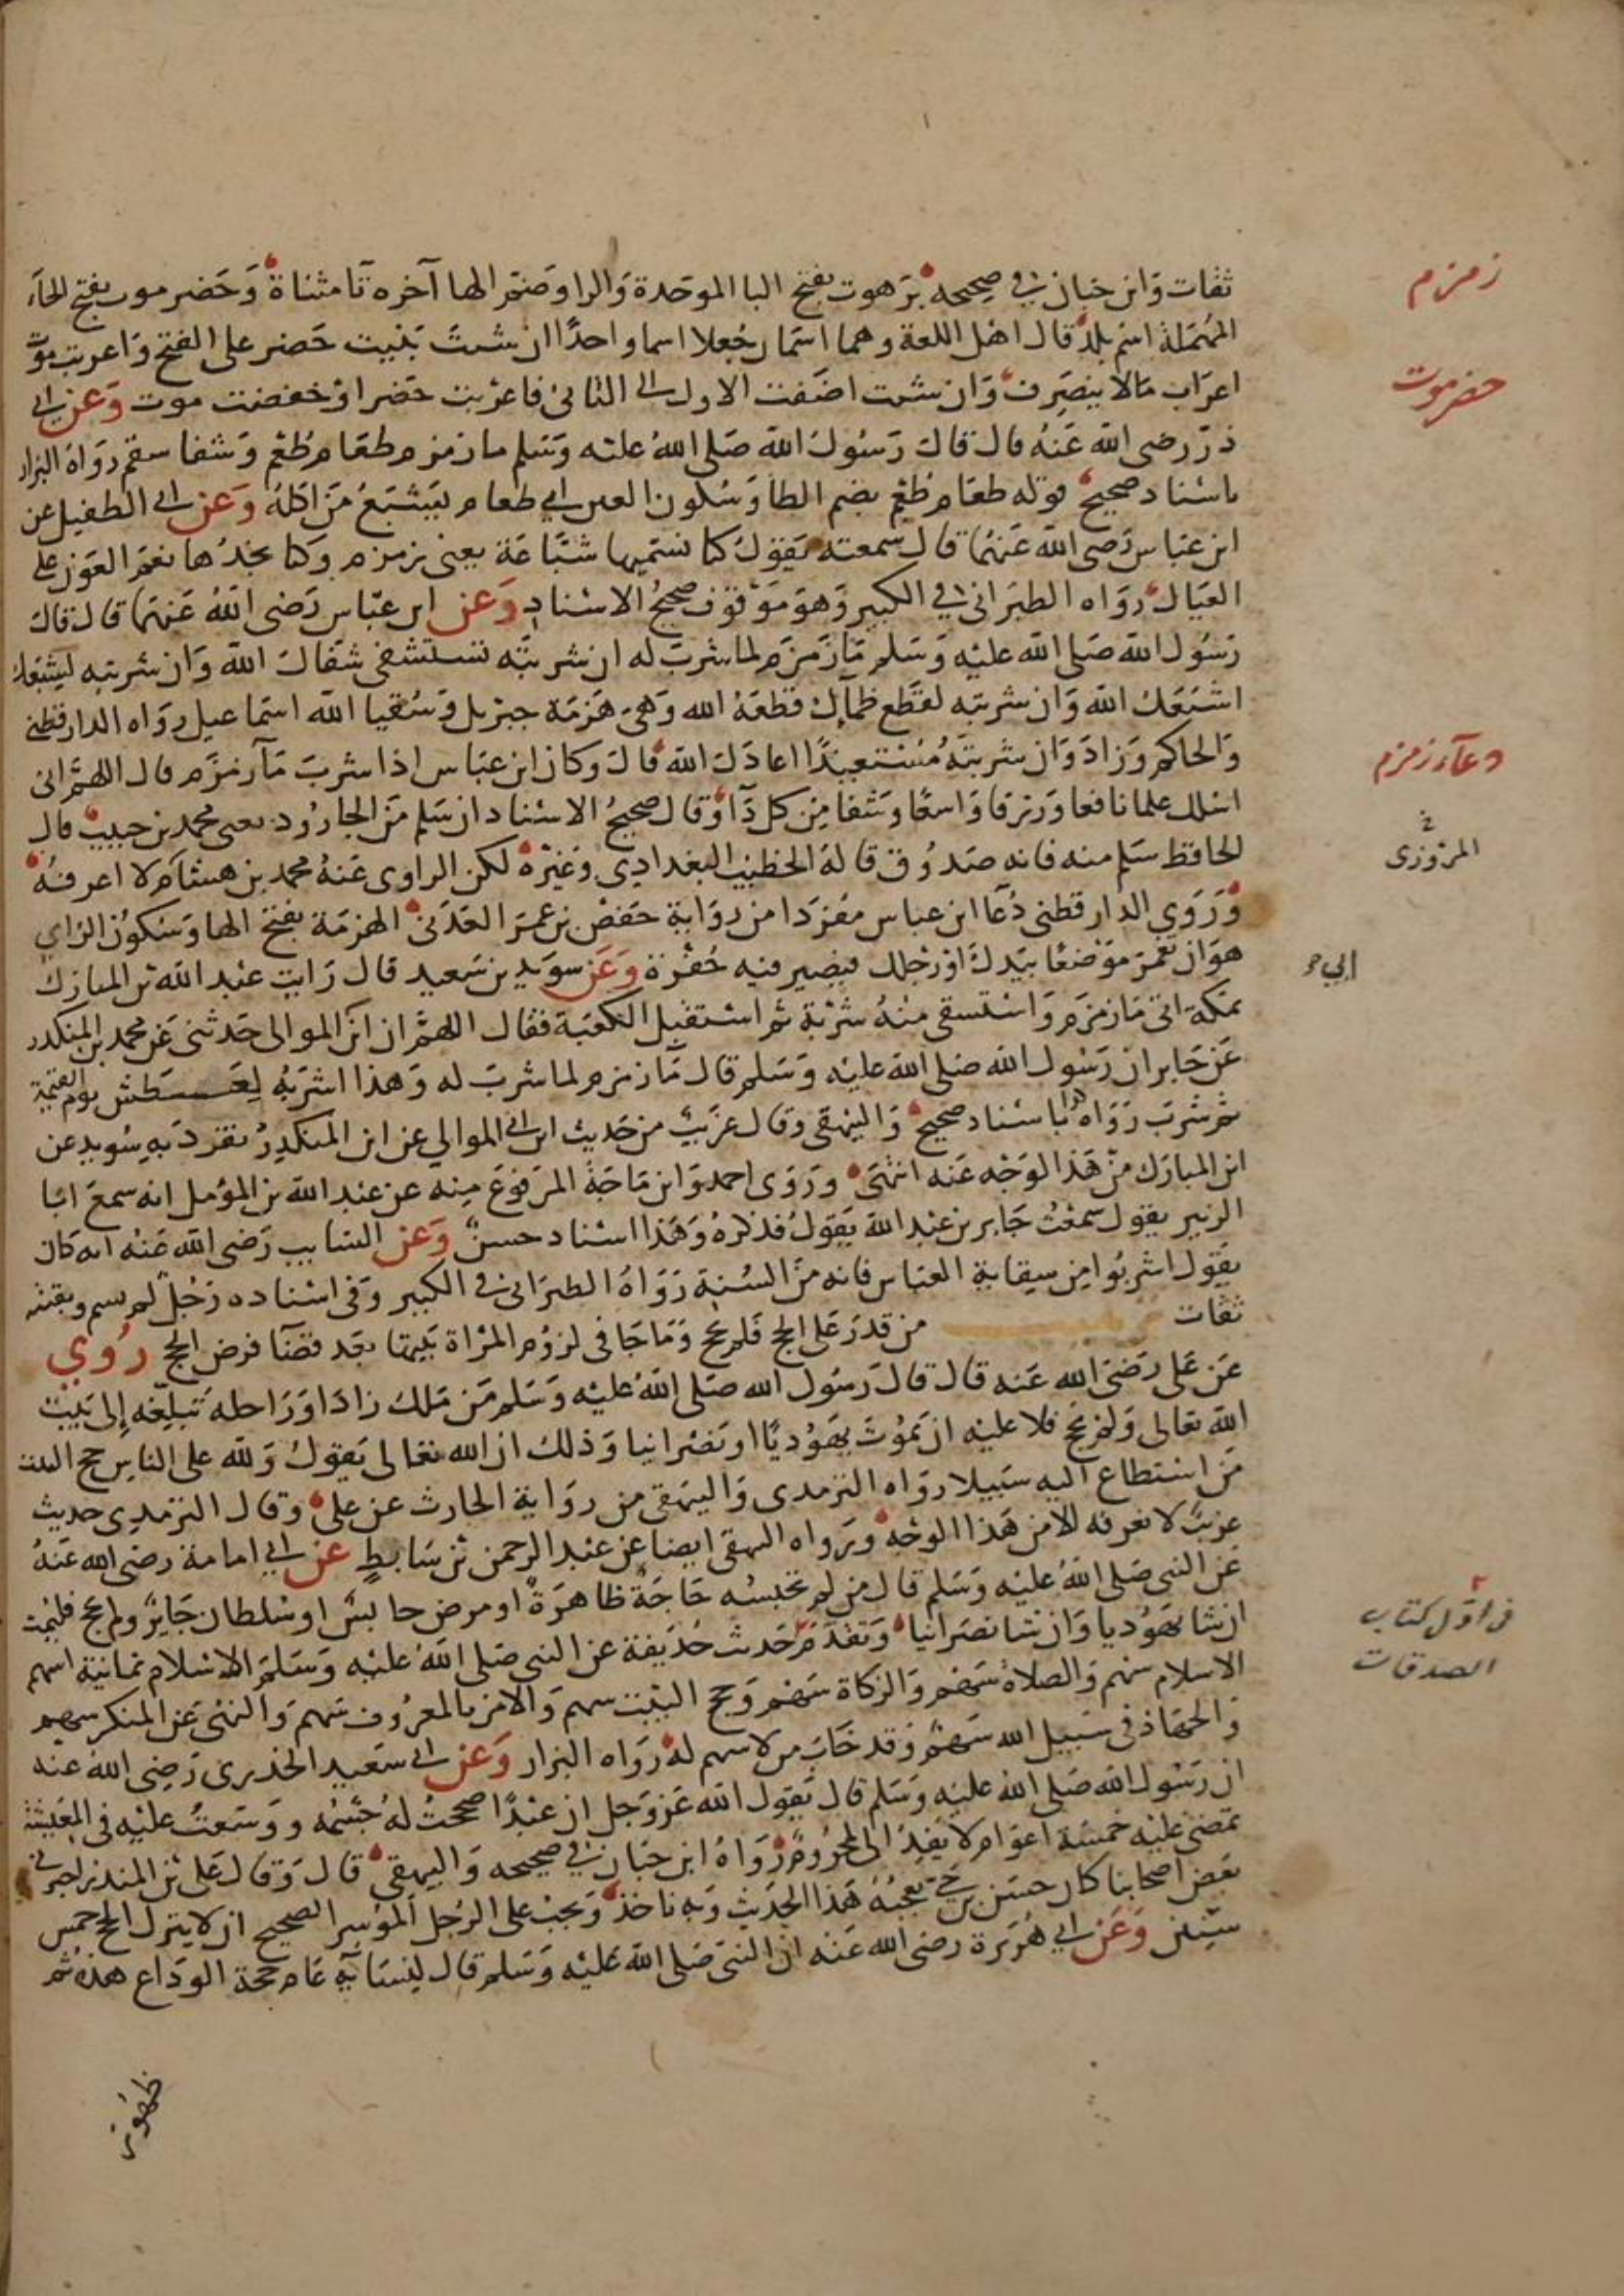 ثقات وابن حبان في صحيحه برهوت بفتح البا الموحدة والرا وضم الها آخره تا مثناة وحضرموت بفتح الحاء
زمزم
المهملة اسم بلد قال اهل اللغة وهما اسمان جعلا اسما واحدا ان شئت بنيت حضر على الفتح واعربت موت
حضرموت
اعراب مالا ينصرف وان شئت اضفت الاول الى الثاني فاعربت حضرا وخفضت موت وعن ابي
ذر رضي الله عنه قال قال رسول الله صلى الله عليه وسلم ما زمزم طعام طعم وشفا سقم رواه البزار
باسناد صحيح قوله طعام طعم بضم الطا وسكون العين اي طعام يشبع من اكله وعن ابي الطفيل عن
ابن عباس رضي الله عنهما قال سمعته يقول كنا نسميها شباعة يعني زمزم وكنا نجدها نعم العون على
العيال رواه الطبراني في الكبير وهو موقوف صحيح الاسناد وعن ابن عباس رضي الله عنهما قال قال
رسول الله صلى الله عليه وسلم ما زمزم لما شرب له ان شربته تستشفي شفاك الله وان شربته ليشبعك
اشبعك الله وان شربته لقطع ظمأك قطعه الله وهي هزمة جبريل وسقيا الله اسماعيل رواه الدارقطني
والحاكم وزاد وان شربته مستعيذا اعاذك الله قال وكان ابن عباس اذا شرب ما زمزم قال اللهم اني
دعآء زمزم
اسلك علما نافعا ورزقا واسعا وشفا من كل دآ وقال صحيح الاسناد ان سلم من الجارود يعني محمد بن حبيب قال
المروزي
الحافظ سلم منه فانه صدوق قاله الخطيب البغدادي وغيره لكن الراوي عنه محمد بن هشام لا اعرفه
وروي الدارقطني دعا ابن عباس مفردا من رواية حفص بن عمر العدني الهزمة بفتح الها وسكون الزاي
هو ان تغمز موضعا بيدك او رجلك فيصير فيه حفرة وعن سويد بن سعيد قال رايت عبد الله بن المبارك
ابي
بمكة اتى ما زمزم واستسقى منه شربة ثم استقبل الكعبة فقال اللهم ان ابن الموالي حدثني عن محمد بن المنكدر
عن جابر ان رسول الله صلى الله عليه وسلم قال ما زمزم لما شرب له وهذا اشربه لعطش يوم القيمة
ثم شرب رواه باسناد صحيح والبيهقي وقال غريب من حديث ابن ابي الموالي عن ابن المنكدر تفرد به سويد عن
ابن المبارك من هذا الوجه عنه انتهى وروى احمد وابن ماجة المرفوع منه عن عبد الله بن المؤمل انه سمع ابا
الزبير يقول سمعت جابر بن عبد الله يقول فذكره وهذا اسناد حسن وعن السايب رضي الله عنه انه كان
يقول اشربوا من سقاية العباس فانه من السنة رواه الطبراني في الكبير وفي اسناده رجل لم يسم وبقيته
ثقات من قدر على الحج فلم يحج وما جا في لزوم المراة بيتها بعد قضا فرض الحج روي
عن علي رضي الله عنه قال قال رسول الله صلى الله عليه وسلم من ملك زادا وراحلة تبلغه إلى بيت
الله تعالى ولم يحج فلا عليه ان يموت يهوديا او نصرانيا وذلك ان الله تعالى يقول ولله على الناس حج البيت
من استطاع اليه سبيلا رواه الترمدي والبيهقي من رواية الحارث عن علي وقال الترمدي حديث
غريب لا نعرفه الا من هذا الوجه ورواه البيهقي ايضا عن عبد الرحمن بن سابط عن ابي امامة رضي الله عنه
عن النبي صلى الله عليه وسلم قال من لم تحبسه حاجة ظاهرة او مرض حابس او سلطان جاير ولم يحج فليمت
ان شا يهوديا وان شا نصرانيا وتقدم حديث حذيفة عن النبي صلى الله عليه وسلم الاسلام ثمانية اسهم
في اول كتاب
الصدقات
الاسلام سهم والصلاة سهم والزكاة سهم وحج البيت سهم والامر بالمعروف سهم والنهي عن المنكر سهم
والجهاد في سبيل الله سهم وقد خاب من لا سهم له رواه البزار وعن ابي سعيد الخدري رضي الله عنه
ان رسول الله صلى الله عليه وسلم قال يقول الله عز وجل ان عبدا صححت له جسمه ووسعت عليه في المعيشة
تمضي عليه خمسة اعوام لا يفد الى لمحروم رواه ابن حبان في صحيحه والبيهقي قال وقال علي بن المنذر اخبرني
بعض اصحابنا كان حسن بن حي يعجبه هذا الحديث وبه ناخذ ويجب على الرجل الموسر الصحيح ان لا يترك الحج خمس
سنين وعن ابي هريرة رضي الله عنه ان النبي صلى الله عليه وسلم قال لنسايه عام حجة الوداع هذه ثم
ظهور